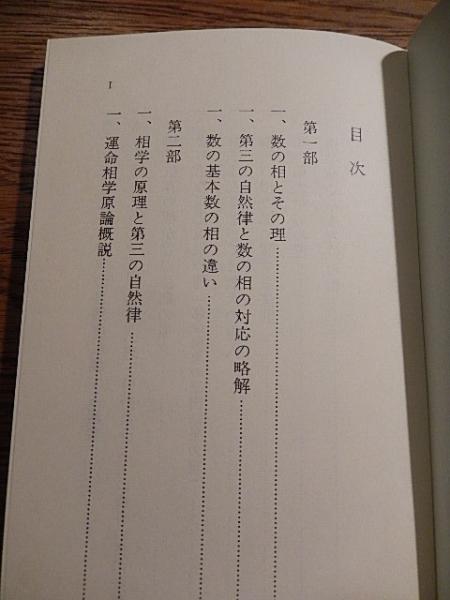 目次
第一部
一、数の相とその理……………………
一、第三の自然律と数の相の対応の略解……………………
一、数の基本数の相の違い……………………
第二部
一、相学の原理と第三の自然律……………………
一、運命相学原論概説……………………
1